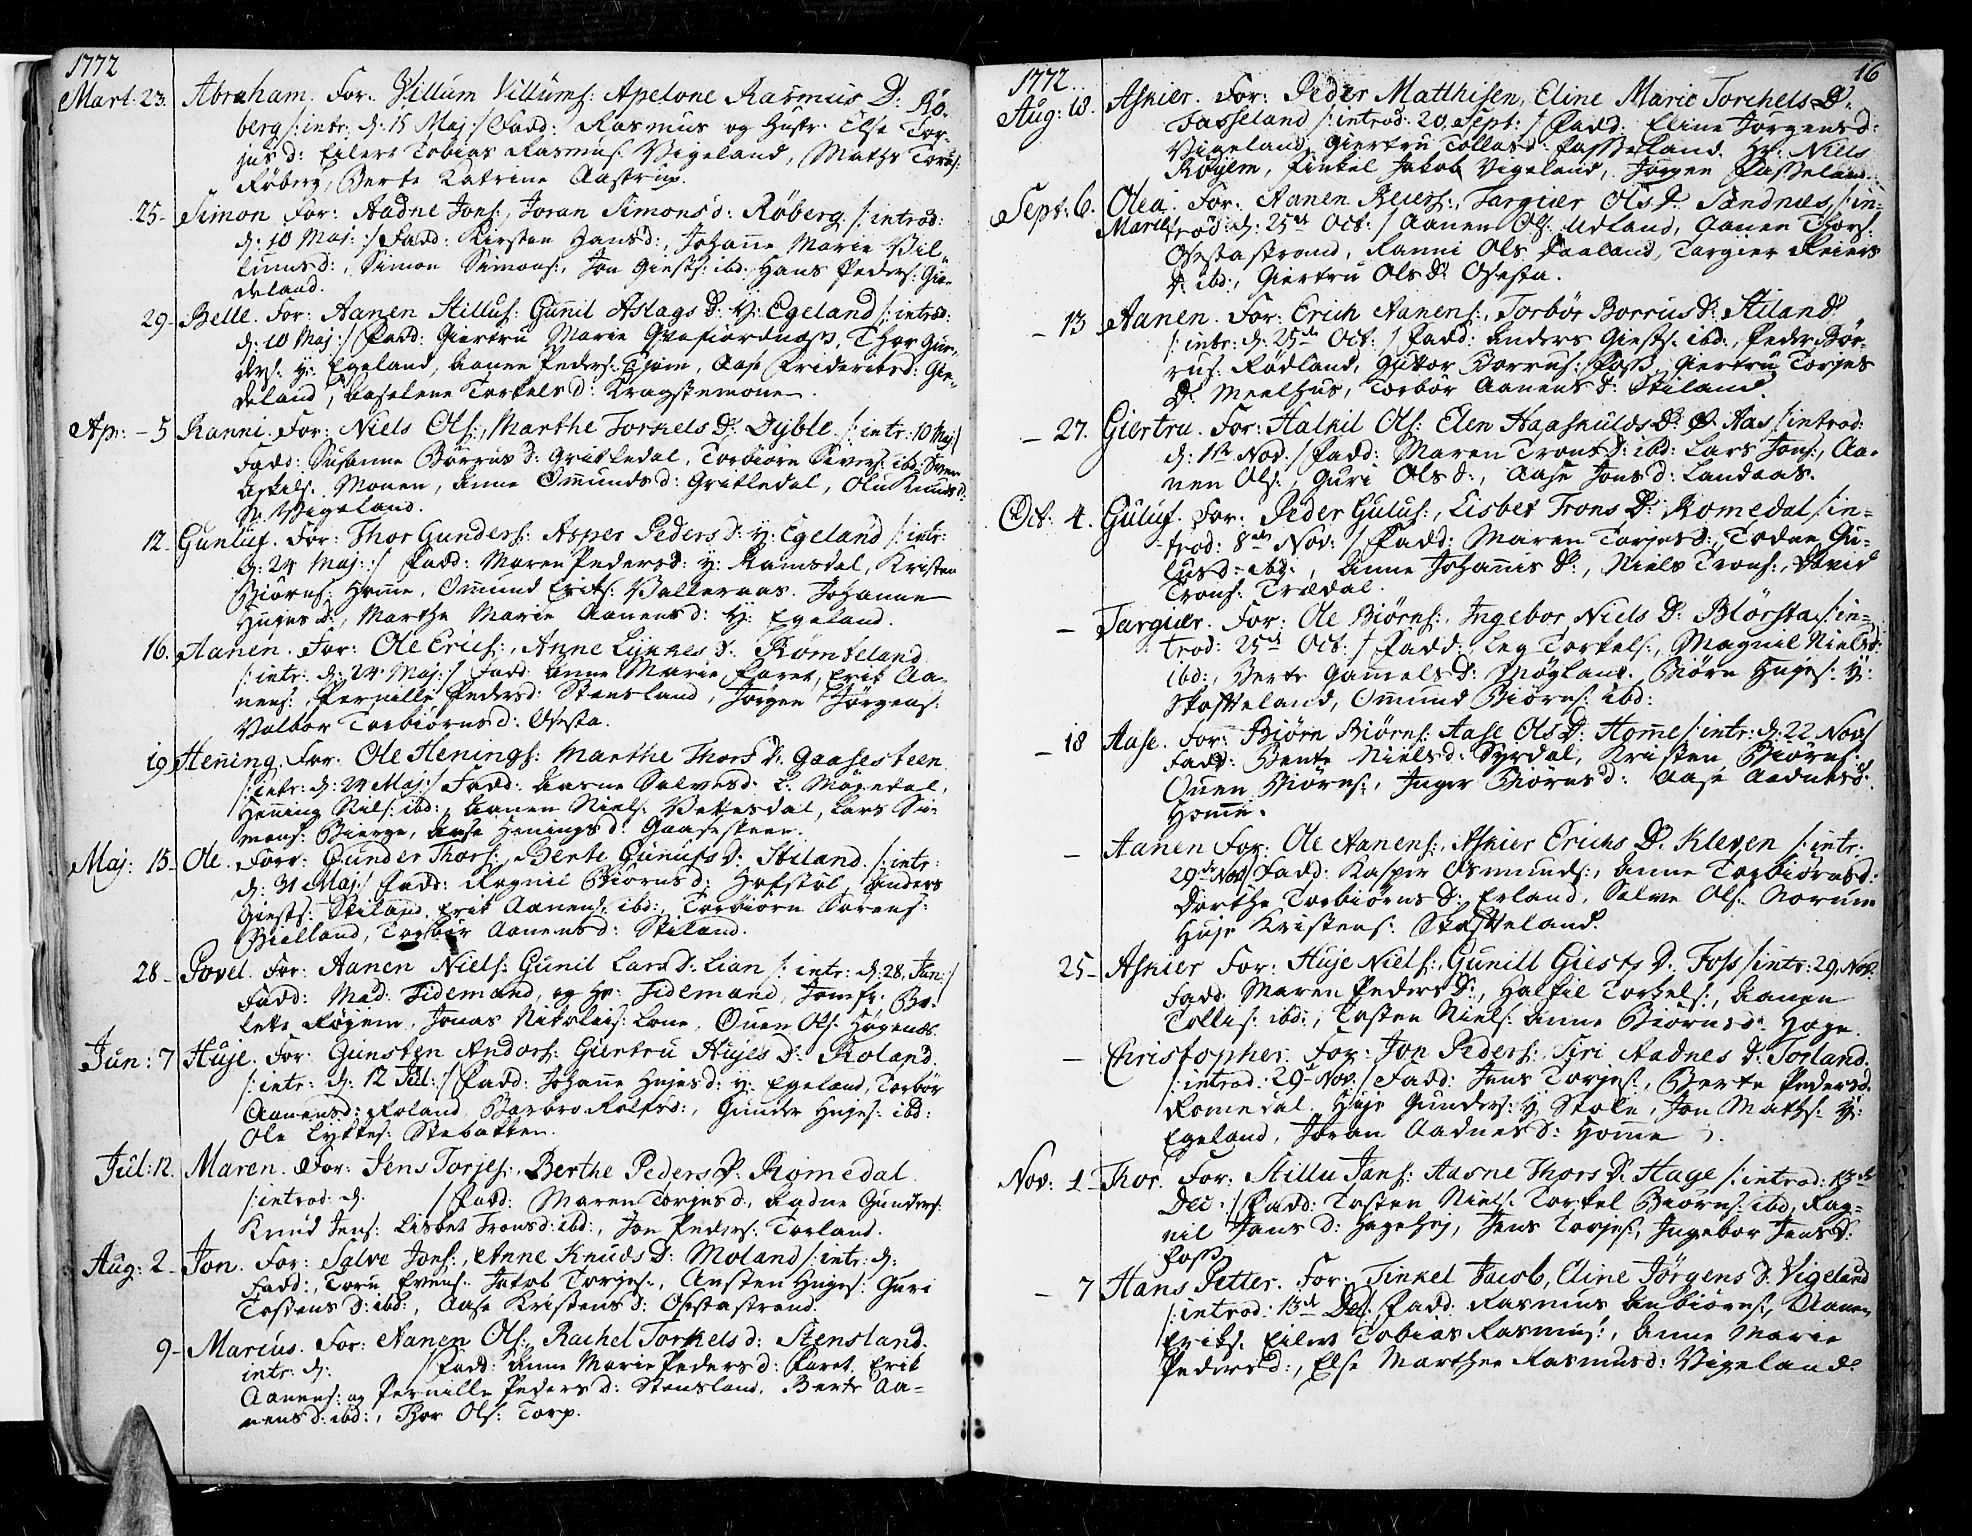 1772
Mart: 23. Abraham. For: Villum Villums: Apelone Rasmus D: Rö-
berg /:intr: d: 15 Maj:/ Fadd: Rasmus og Hustr: Else Tor-
jus d: Eilert Tobias Rasmus: Vigeland, Maths Tor:
Röberg, Berte Katrine Aastrup.
25 - Simon For: Aadne Jons:, Joran Simons d: Röberg /: introd:
d: 10 Maj: :/ Fadd: Kirsten Hansd:, Johanne Marie Vil-
lumsd:, Simon Simons:, Jon Giests: ibd: Hans Peders: Gie-
deland.
29 - Belle. For: Aanen Stillufs: Gunil Aslags D: Y: Egeland /: introd:
d: 10 Maj:/ Fadd: Giertru Marie, Thor Gun-
ders: y: Egeland, Aanen Peders:, Aase Friderichsd: Gie-
deland, Aaselene Torkels d: Kragstemone.
Ap: - 5 Ranni. For: Niels Ols:, Marthe Torkels D: Dyble. /: intr: 10 Maj:/
Fadd: Susanne Börrus d: Gritledal, Torbiörn Sivers: ibd: Sven
Askils: Monen, Anne Ommunds d: Gritledal, Olu Knuds d:
Vigeland.
12 - Gunluf. For: Thor Gunders: Asper Peders d: y: Egeland /: intr:
d: 24 Maj: :/ Fadd: Maren Pedersd: y: Ramsdal, Kristen
Biörns: Homme, Ommund Eriks: Valleraas. Johanne
Hujes d:, Marthe Marie Aanens d: y: Egeland.
16. Aanen. For: Ole Erichs:, Anne Lykkes D: Römteland
/: intr: d: 24 Maj:/ Fadd: Anne Marie Faret, Erik Aa-
nens: Pernille Pedersd: Stensland, Jörgen Jörgens:
Valbor Torbiörns d: Osesta.
19 Henning. For: Ole Hennings: Marthe Thors D: Gaasesteen
/: intr: d: 24 Maj:/ Fadd: Aasne Salvesd: L: Mögedal,
Henning Niels: ibd:, Aanen Niels: Vattesdal, Lars Si-
mons: Bierge, Aase Hennings d: Gaasesteen.
Maj: 15 - Ole. Forr: Gunder Thors:, Berte Gunufs d: Stiland. /: intr:
d: 31 Maj:/ Fadd: Ragnil Biörns d: Hofstöl, Anders
Giests: Skiland, Erik Aanens: ibd:, Torbiörn Sörens:
Bielland, Torbör Aanens d: Skiland.
28 - Povel. For: Aanen Niels: Gunil Lars d: Lian /: intr: d: 28, Jun:/
Fadd: Mad: Tidemand, og Hr: Tidemand, Jomfr: Bo-
lette Röjem, Jonas Nikolais: Lone, Ouen Ols: Högenæs.
Jun: 7 Huje. For: Gunsten Andors: Giertru Hujes D: Roland.
/: intr: d: 12 Jul:/ Fadd: Johanne Hujes d: y: Egeland, Torbör
Aanensd: Roland, Barbro Rolfsd:, Gunder Hujes: ibd:
Ole Lykkes: Stebakken.
Jul: 12. Maren. For: Jens Torjes:, Berthe Peders D: Romedal.
/: introd: d. / Fadd: Maren Torjes d:, Aadne Gunders:
Knud Jens: Lisbet Trons d: ibd:, Jon Peders: Torland.
Aug: 2 - Jon. For: Salve Jons:, Anne Knuds D: Moland /: intr: d:
Fadd:, Toru Evens: Jakob Torjes:, Austen Hujes: Guri
Tostens D: ibd:, Aase Kristens d: Osestastrand.
9 - Marius. For: Aanen Ols:, Rachel Torkels d: Stensland.
intr: d: / Fadd: Anne Marie Peders d: Faret. Erik
Aanens: og Pernille Peders d: Stensland, Berte Aa-
nens d: ibd:, Thor Ols: Torp.
16
1772.
Aug: 18. Askier. For: Peder Matthisen, Eline Marie Torchels D:
Fasseland /: introd: 20 Sept: / Fadd: Eline Jörgens d:
Vigeland, Giertru Tollas d: Fasseland. Hr: Niels
Röyem, Finkel Jakob Vigeland, Jörgen Fasseland.
Sept: 6. Olea For: Aanen Reiers:, Targier Ols D: Sandnæs /: in-
Marie trod: d: 25de Oct: / Aanen Ols: Udland, Aanen Thors:
Osestastrand, Ranni Ols Faaland, Targier Reiers
D: ibd:, Giertru Ols D: Osesta.
- 13 Aanen. For: Erich Aanens:, Torbör Borrus D: Stiland
/: intr: d: 25de Oct: / Fadd: Anders Giests: ibd:, Peder Bör-
rus: Rödland, Guttor Borrus: Foss, Giertru Torjes
D: Meelhus, Torbör Aanens D: Skiland.
- 27. Giertru. For: Halkil Ols: Elen Haaskulds D: Ø Aas /: introd:
d: 1ste Nov: / Fadd: Maren Trons D: ibd: Lars Jons:, Aa-
nen Ols:, Guri Ols D:, Aase Jons d: Landaas.
Oct: 4. Guluf. For: Peder Gulus:, Lisbet Trons D: Romedal /: in-
trod: 8de Nov: / Fadd: Maren Torjesd:, Todne Gu-
lus d: ibd:, Anne Johannis D:, Niels Trons:, David
Trons: Trædal.
- Targier. For: Ole Biörns:, Ingebor Niels D: Blörsta /: in-
trod: 25de Oct: / Fadd: Leg Torkels:, Magnil Nielsd:
ibd:, Berte Gamels D: Möglant. Biörn Hujes: Y:
Skofteland, Ommund Biörns: ibd:
- 18 Aase. For: Biörn Biörns: Aase Ols D: Home /: intr: d: 22 Nov:/
Fadd: Bente Niels d: Syrdal, Kristen Biörns:
Ouen Biörns:, Inger Biörns d: Aase Aadnesd:
Home.
- Aanen For: Ole Aanens:, Askier Erichs D: Kleven /: intr:
29de Nov:/ Fadd: Kasper Osmunds:, Anne Torbiörnsd:
Dorthe Torbiörns D: Erland, Salve Ols: Norum
Huje Kristens: Skofteland.
25 - Askier For: Huje Niels:, Gunill Giests D: Foss /: intr: 29, Nov:
Fadd: Maren Peders D:, Halkil Torkels:, Aanen
Tollis: ibd:, Tosten Niels: Anne Biörns d: Hage.
- Christopher. For: Jon Peders:, Siri Aadnes d: Torland.
/: introd: 29de Nov: / Fadd: Jens Torjes:, Berte Pedersd:
Romedal. Huje Gunders: y Stole, Jon Maths: Y:
Egeland, Joran Aadnes D: Home.
Nov: 1 - Thor. For: Stillu Jans: Aasne Thors D: Hage /: introd: 13de
Dec: / Fadd: Tosten Niels: Torkel Biörns: ibd: Rag-
nil Jans d: Hagehej, Jens Torjes:, Ingebor Jens D:
Foss
- 7 Hans Petter. For: Finkel Jacob, Eline Jörgens d: Vigeland
/: introd: 13de Dec: / Fadd: Rasmus Anbiörns:, Aanen
Eriks: Eilert Tobias Rasmus:, Anne Marie
Pedersd:, Else Marthee Rasmusd: Vigeland.